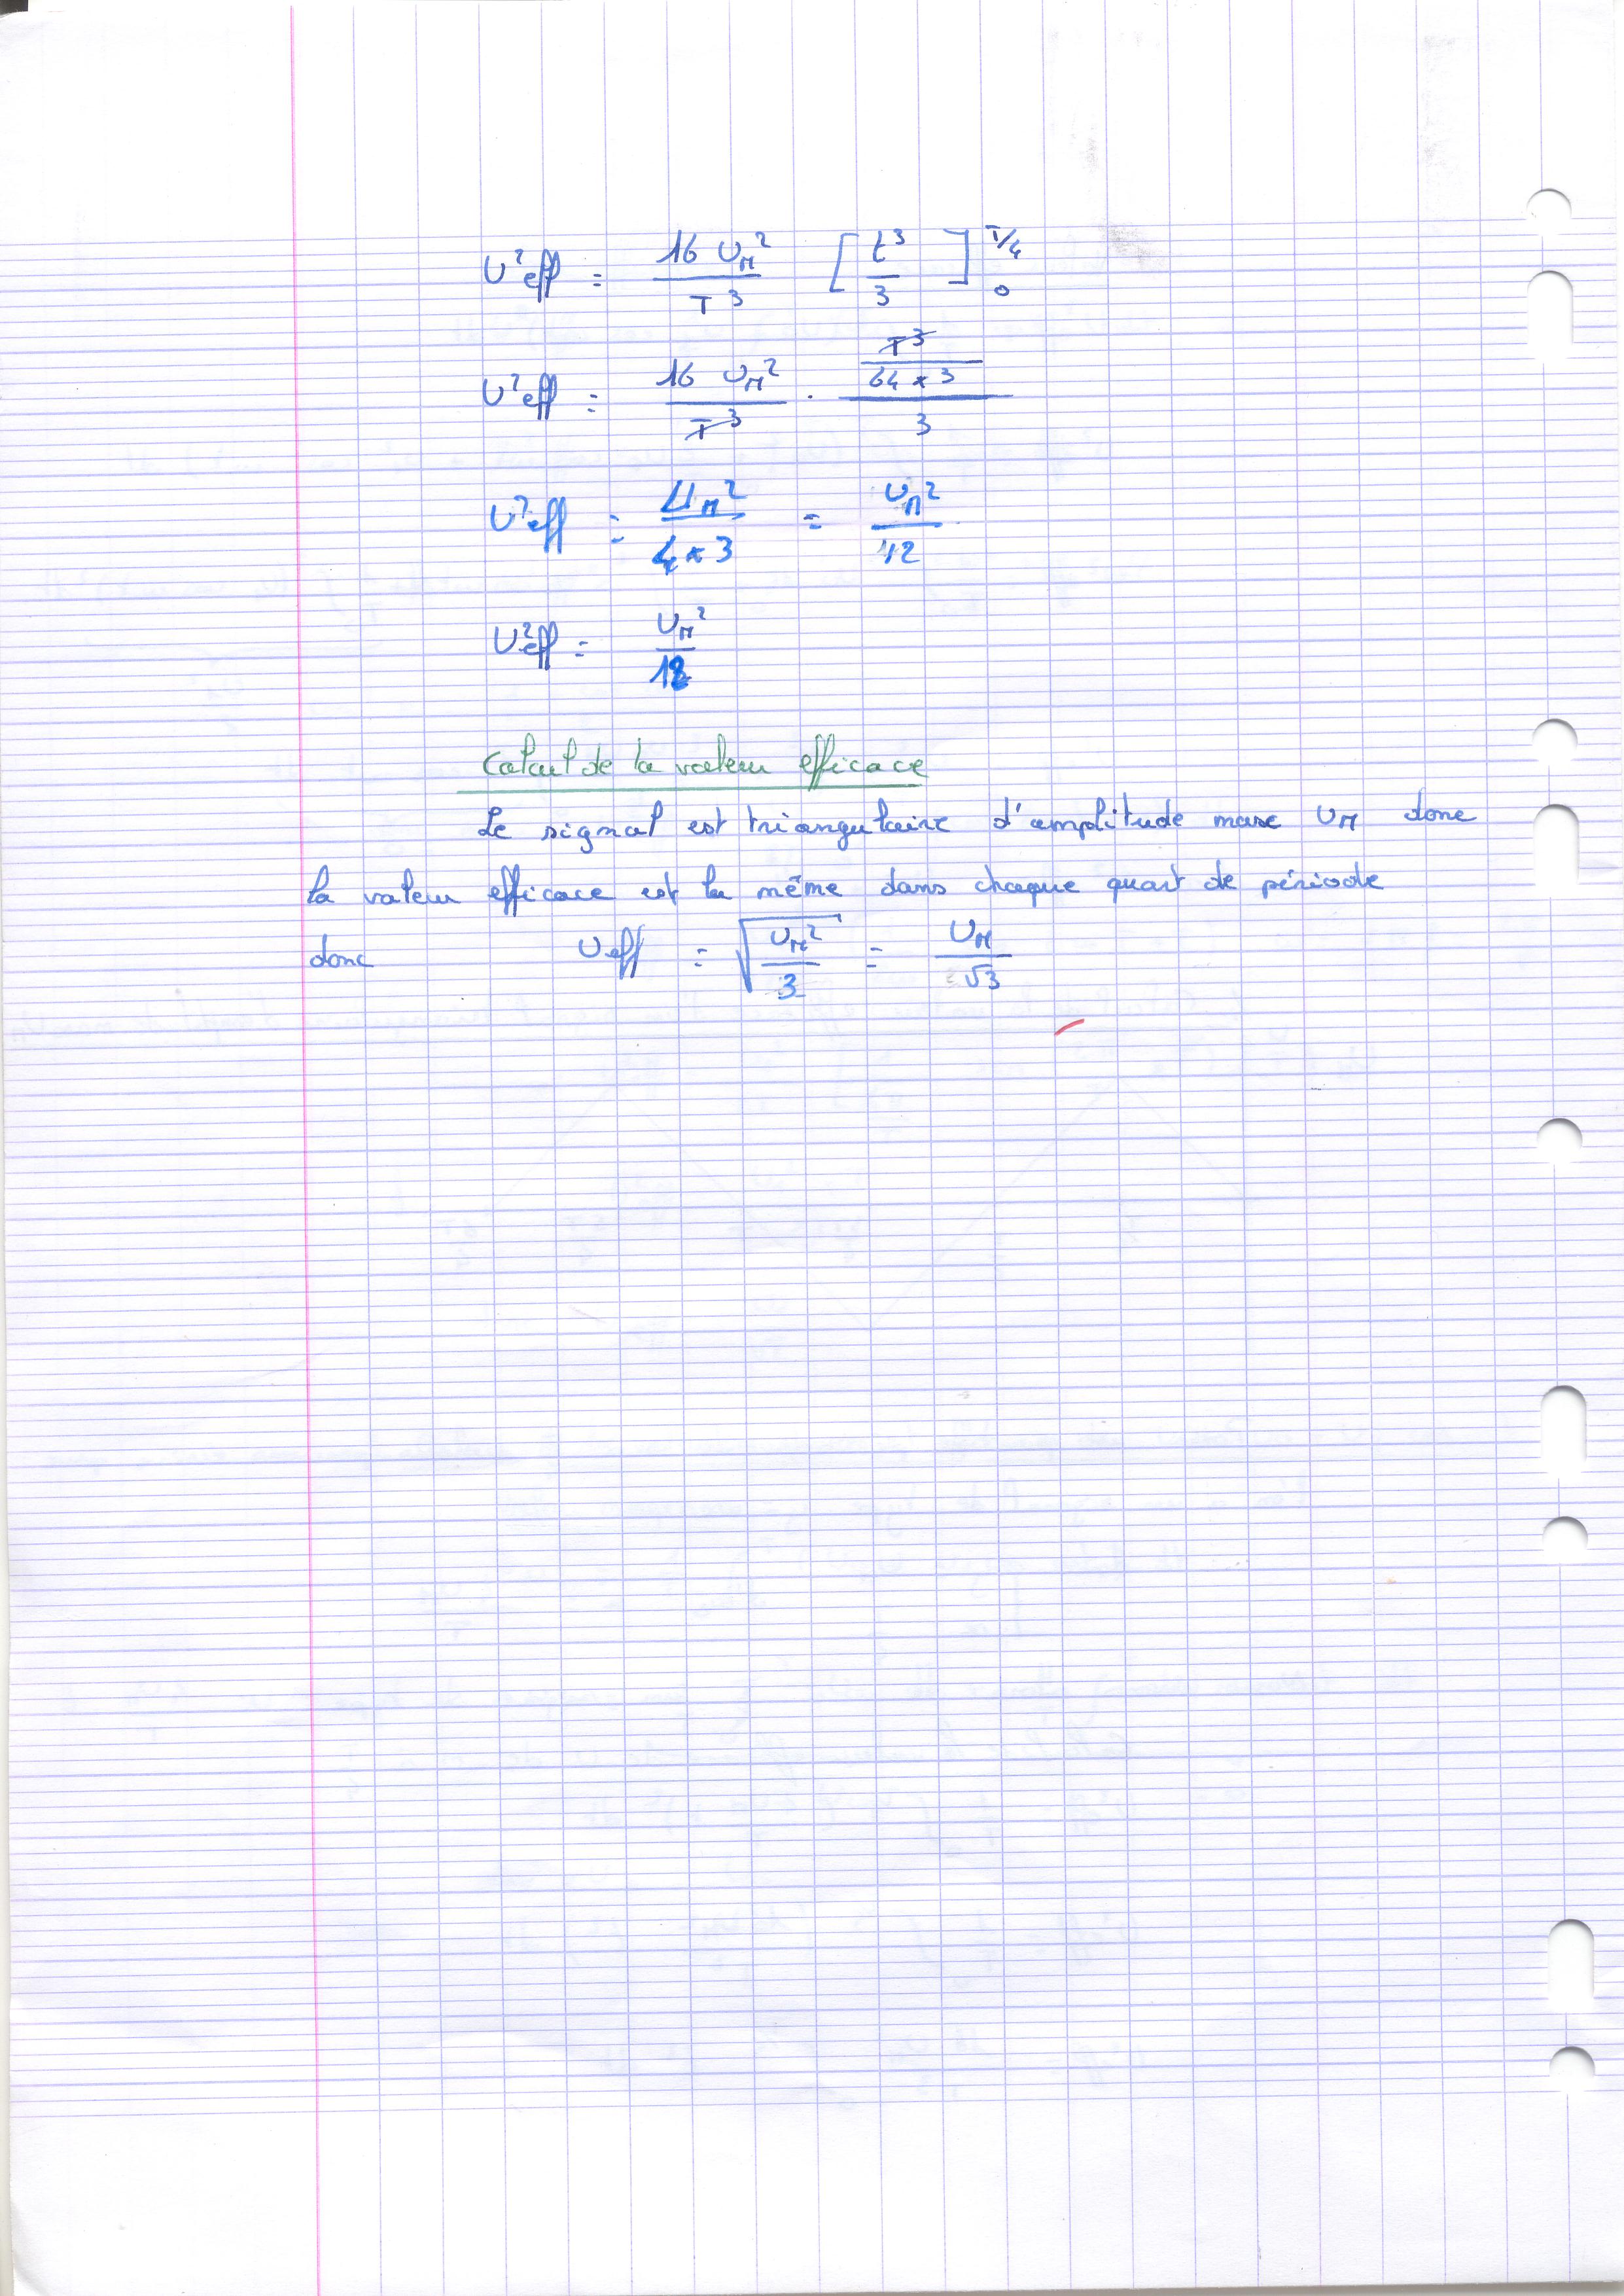 U²eff = 16 U_M² / T³ [ t³ / 3 ]₀^{T/4}
U²eff = 16 U_M² / T³ · (T³ / 64 × 3) / 3
U²eff = U_M² / 4 × 3 = U_M² / 12
U²eff = U_M² / 12
Calcul de la valeur efficace
Le signal est triangulaire d'amplitude max U_M donc
la valeur efficace est la même dans chaque quart de période
donc Ueff = √(U_M² / 3) = U_M / √3